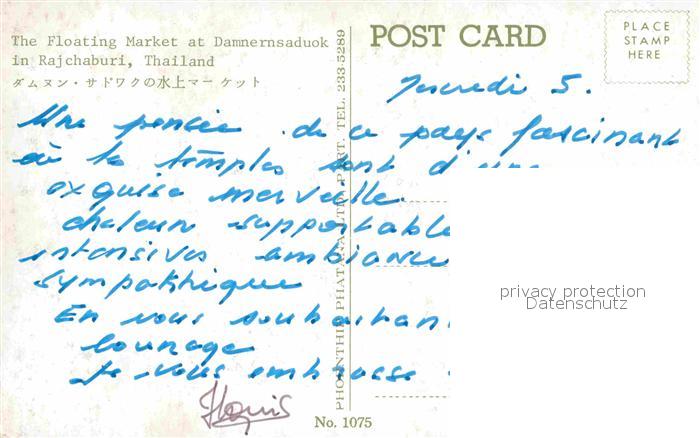 The Floating Market at Damnernsaduok
in Rajchaburi, Thailand
ダムヌン・サドワクの水上マーケット
POST CARD
PLACE
STAMP
HERE
Une pensée de ce pays fascinant
où les temples sont d'une
exquise merveille.
chaleur supportable
intensives ambiance
sympathique
En vous souhaitant
courage
Je vous embrasse
PHATANA LTD. PART. TEL. 233-5289
No. 1075
privacy protection
Datenschutz